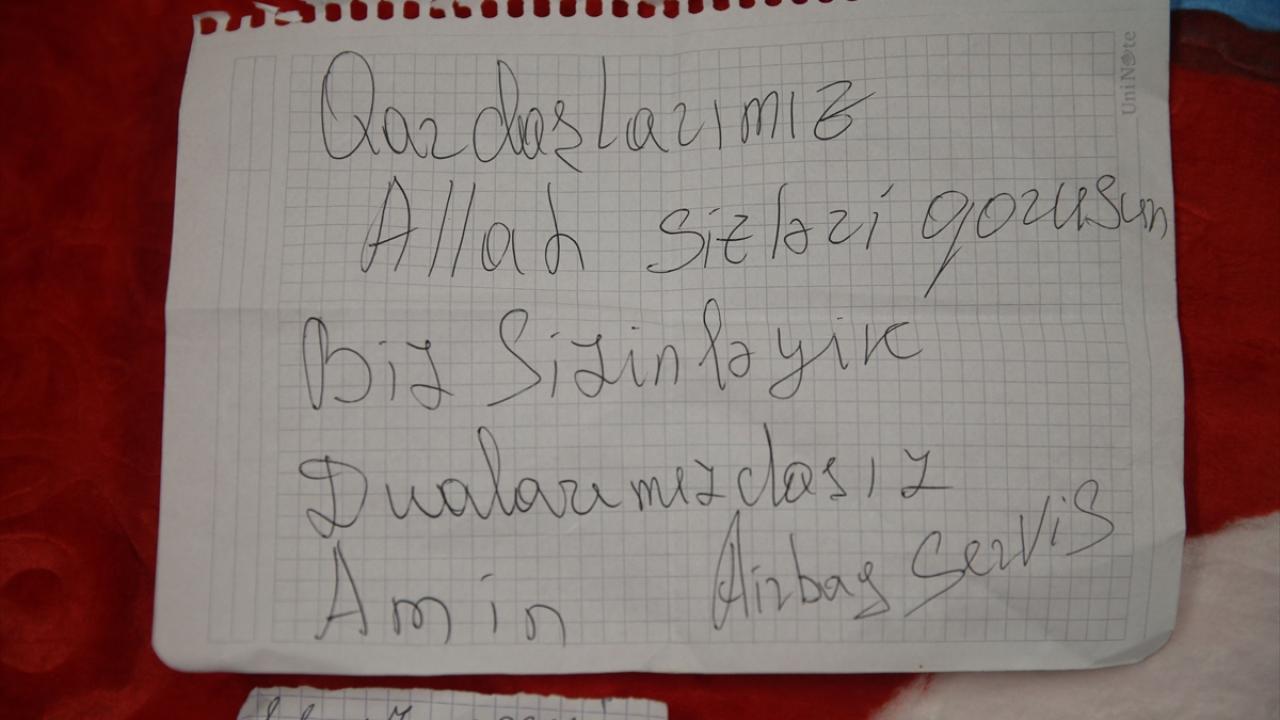 Qardaşlarımız
Allah sizləri qorusun
Biz Sizinləyik
Dualarımızdasız
Amin Airbag Servis
UniNote